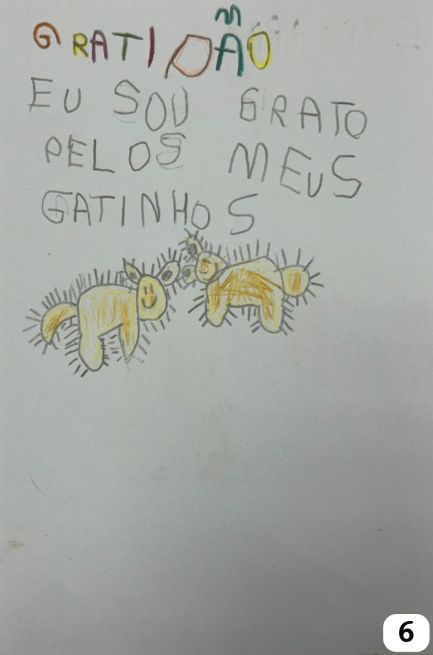 GRATIDÃO
EU SOU GRATO
PELOS MEUS
GATINHOS
6